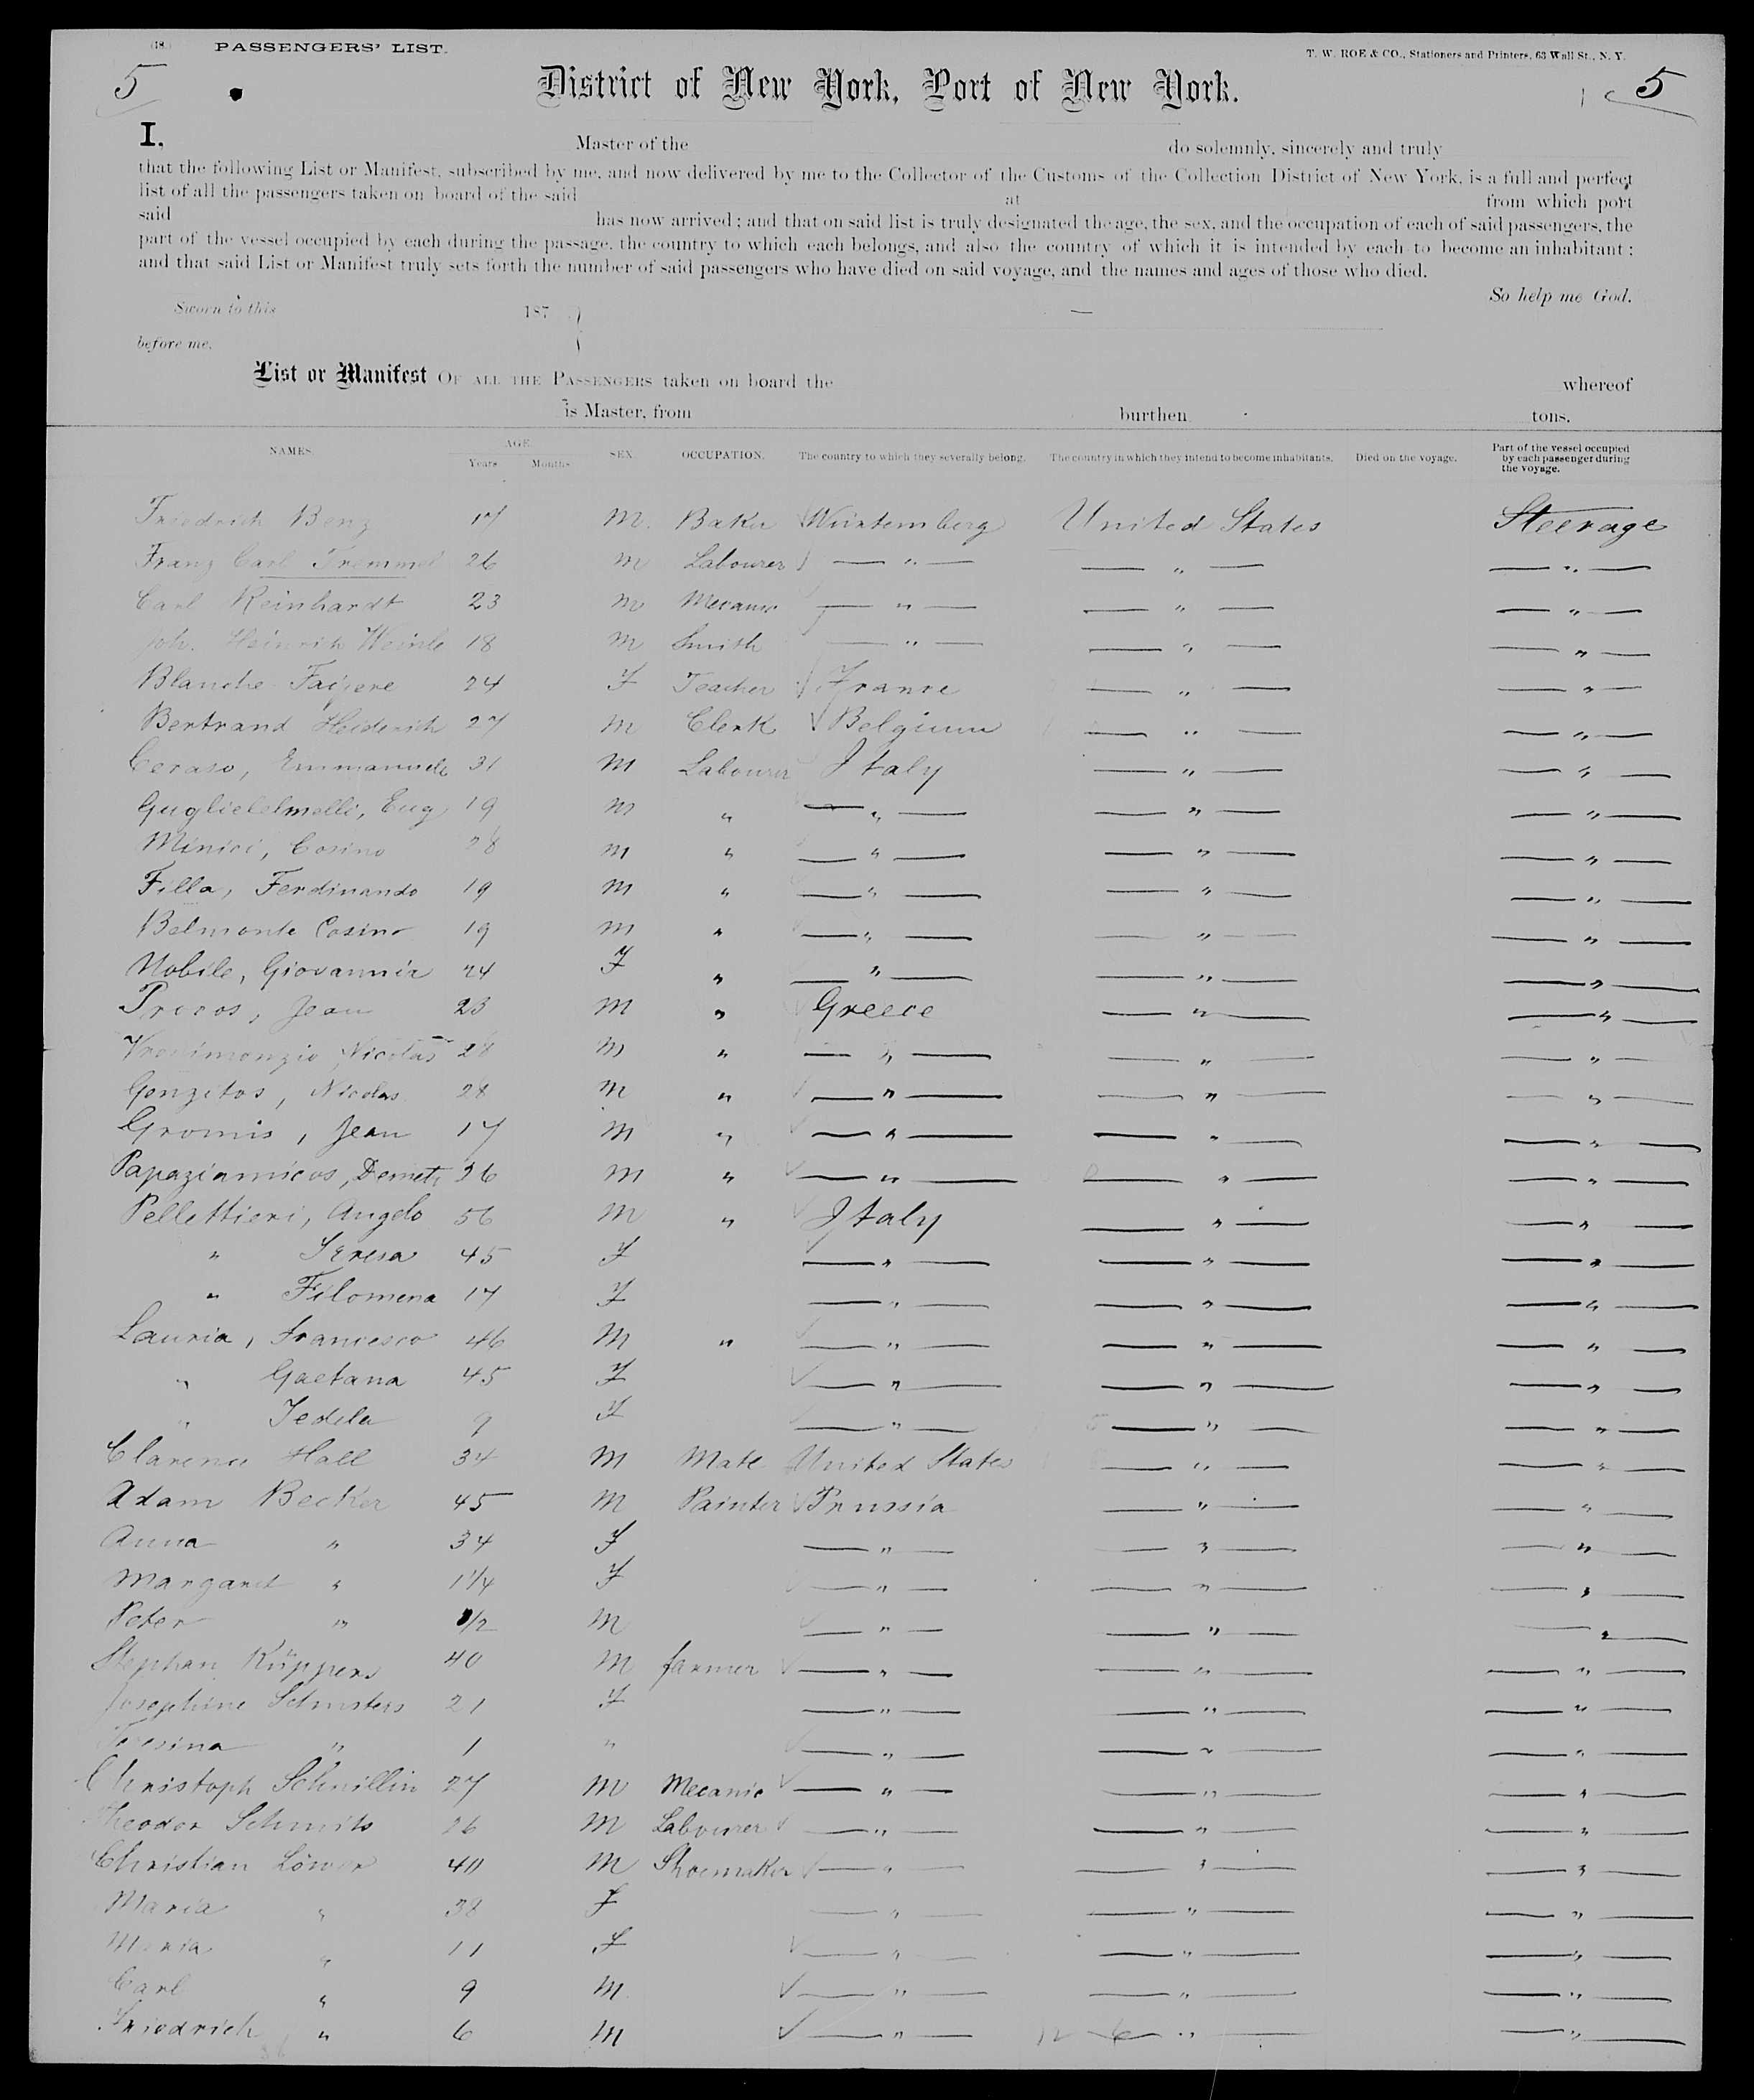 (18.) PASSENGERS' LIST. T. W. ROE & CO., Stationers and Printers, 63 Wall St., N. Y.
5 District of New York, Port of New York. 5
I, Master of the do solemnly, sincerely and truly
that the following List or Manifest, subscribed by me, and now delivered by me to the Collector of the Customs of the Collection District of New York, is a full and perfect
list of all the passengers taken on board of the said at from which port
said has now arrived; and that on said list is truly designated the age, the sex, and the occupation of each of said passengers, the
part of the vessel occupied by each during the passage, the country to which each belongs, and also the country of which it is intended by each to become an inhabitant;
and that said List or Manifest truly sets forth the number of said passengers who have died on said voyage, and the names and ages of those who died.
So help me God.
Sworn to this 187
before me,
List or Manifest OF ALL THE PASSENGERS taken on board the whereof
is Master, from burthen tons.
NAMES. AGE. Years Months SEX. OCCUPATION. The country to which they severally belong. The country in which they intend to become inhabitants. Died on the voyage. Part of the vessel occupied by each passenger during the voyage.
Friedrich Benz 17 M. Baker Würtemberg United States Steerage
Franz Carl Tremmel 26 M Labourer — " — — " — — " —
Carl Reinhardt 23 M Mecanic — " — — " — — " —
Joh. Heinrich 18 M Smith — " — — " — — " —
Blanche 24 F Teacher France — " — — " —
Bertrand Heiderich 27 M Clerk Belgium — " — — " —
Ceraso, Emmanuele 31 M Labourer Italy — " — — " —
Guglielelmelli, Eug 19 M " — " — — " — — " —
Minici, Cosino 28 M " — " — — " — — " —
Filla, Ferdinando 19 M " — " — — " — — " —
Belmonte Cosino 19 M " — " — — " — — " —
Nobile, Giovannia 24 F " — " — — " — — " —
Precos, Jean 23 M " Greece — " — — " —
Nicolas 28 M " — " — — " — — " —
Gonzitos, Nicolas 28 M " — " — — " — — " —
Gromis, Jean 17 M " — " — — " — — " —
Papaziamicos, Demetr 36 M " — " — — " — — " —
Pellettieri, Angelo 56 M " Italy — " — — " —
" Teresa 45 F — " — — " — — " —
" Filomena 17 F — " — — " — — " —
Lauria, Francesco 46 M " — " — — " — — " —
" Gaetana 45 F — " — — " — — " —
" Fedela 9 F — " — — " — — " —
Clarence Hall 34 M Mate United States — " — — " —
Adam Becker 45 M Painter Prussia — " — — " —
Anna " 34 F — " — — " — — " —
Margaret " 1 1/4 F — " — — " — — " —
Peter " 1/2 M — " — — " — — " —
Stephan Küppers 40 M farmer — " — — " — — " —
Josephine Schusters 21 F — " — — " — — " —
Tresina " 1 " — " — — " — — " —
Christoph Schnillin 27 M Mecanic — " — — " — — " —
Theodor Schmits 26 M Labourer — " — — " — — " —
Christian Löwer 40 M Shoemaker — " — — " — — " —
Maria " 38 F — " — — " — — " —
Maria " 11 F — " — — " — — " —
Carl " 9 M — " — — " — — " —
Friedrich " 6 M — " — — " — — " —